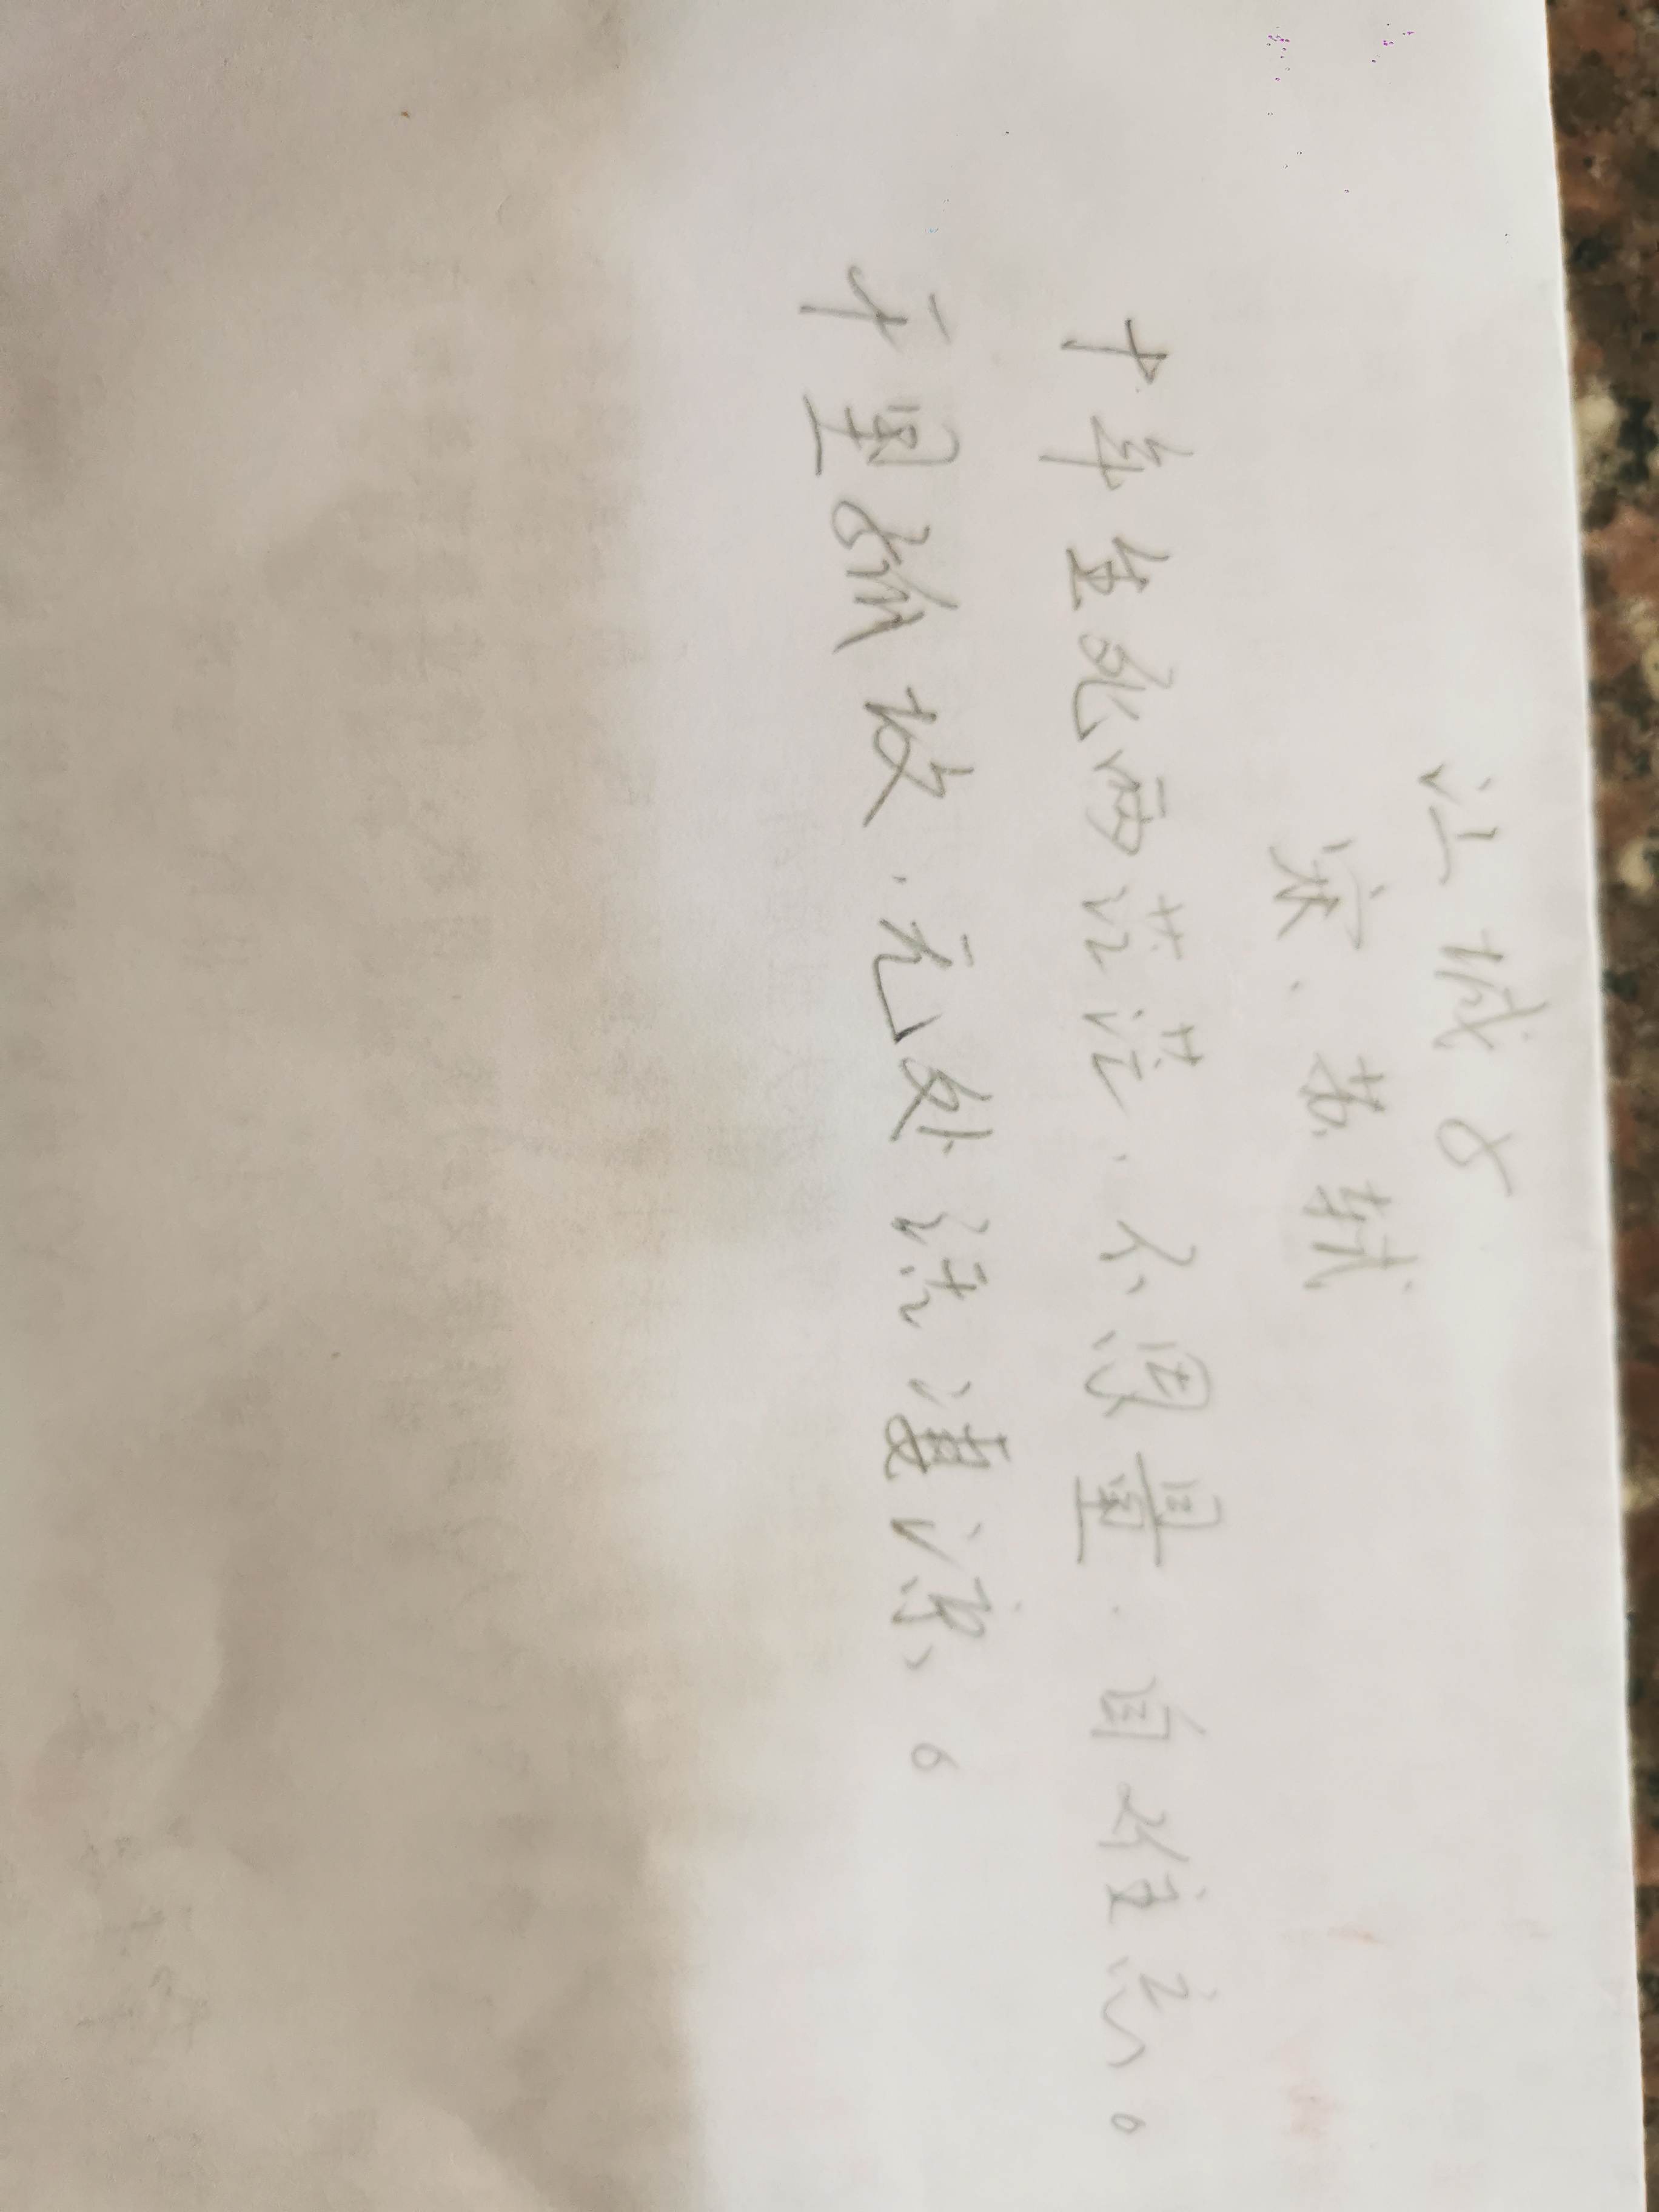 江城子
宋.苏轼
十年生死两茫茫.不思量.自难忘。
千里孤坟.无处话凄凉。